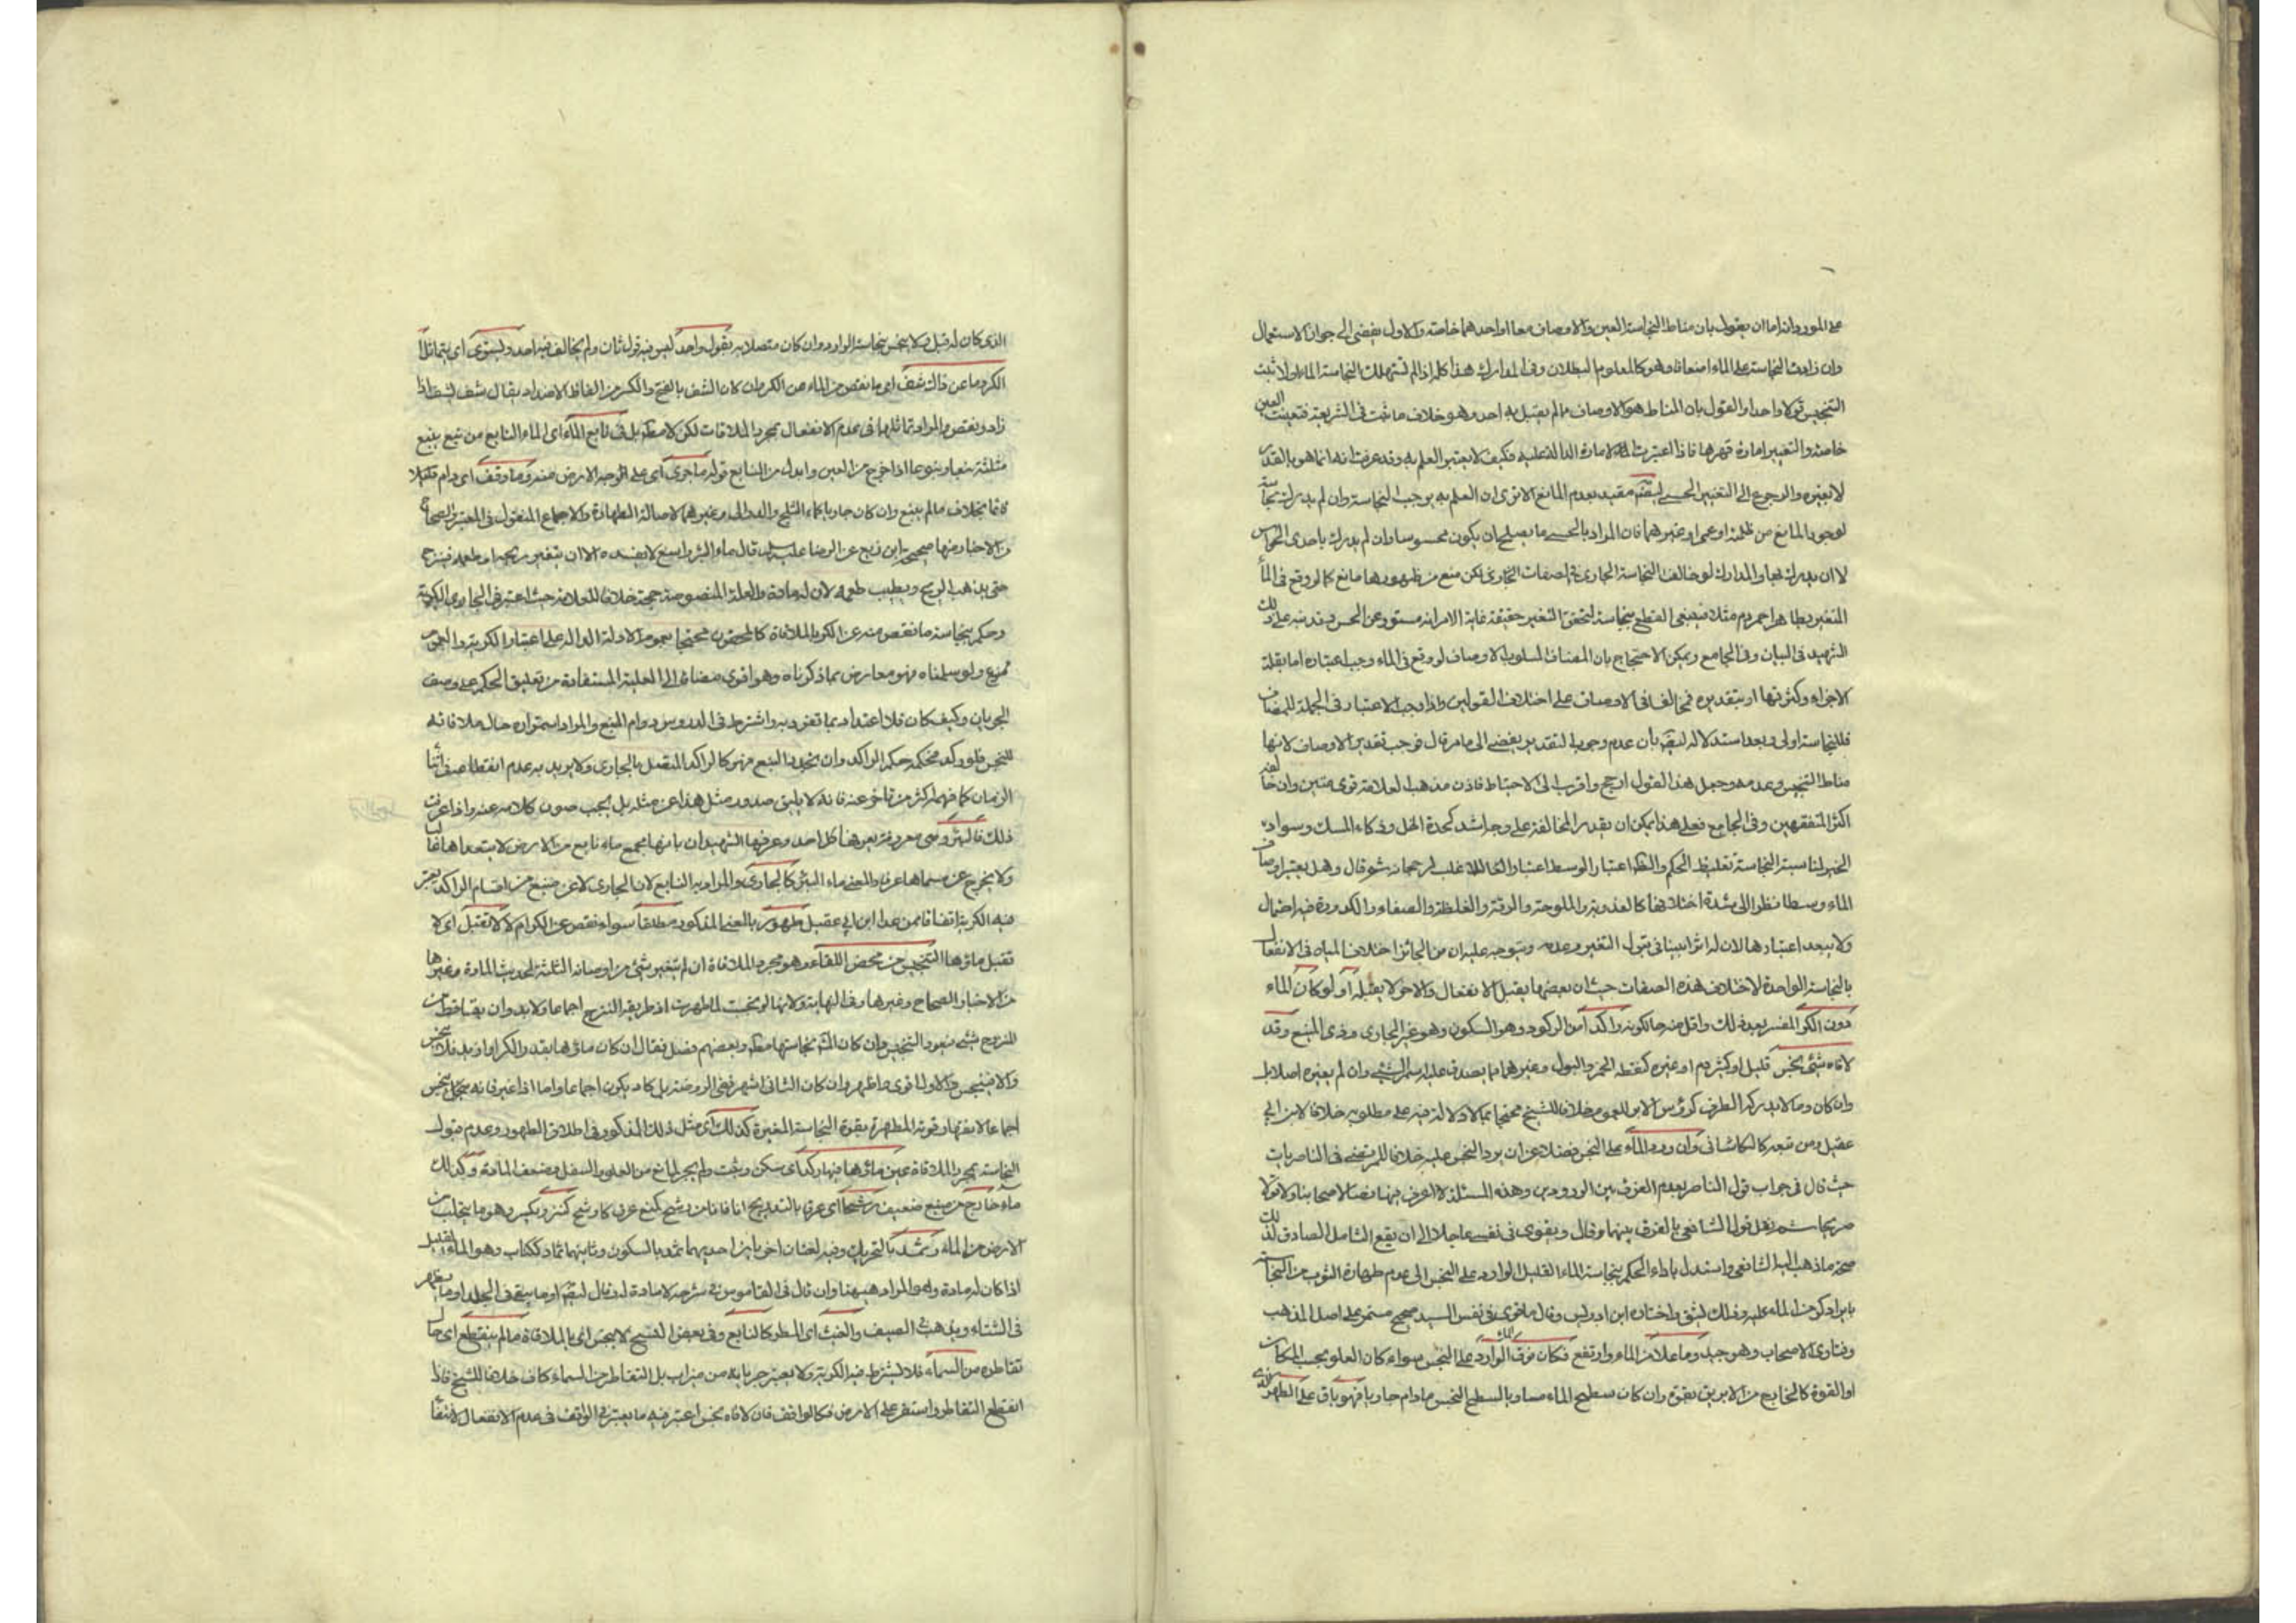 على المورد وانه اما ان يقول بان مناط النجاسة العين والاوصاف معا او احدهما خاصة والاول يفضى الى جواز الاستعمال
وان زادت النجاسة على الماء اضعافا وهو كالمعلوم البطلان وفى المدارك هذا كله اذا لم تستهلك النجاسة الماء والا ثبت
التنجيس قولا واحدا والقول بان المناط هو الاوصاف مما لم يقبل به احد وهو خلاف ما ثبت فى الشريعة فتعينت العين
خاصة والتغيير امارة قهرها فاذا اعتبرت الامارة الدالة عليه فكيف لا يعتبر العلم به وقد عرفت انه انما هو بالقدر
لا بغيره والرجوع الى التغيير الحسى مقيد بعدم المانع الا ترى ان العلم به يوجب النجاسة وان لم يدرك نجاسة
لوجود المانع من ظلمة او عمى او غيرهما فان المراد بالحسى ما يصلح ان يكون محسوسا وان لم يدرك باحدى الحواس
لا ان يدرك بها والمدارك لو خالفت النجاسة الجارى فى صفات الجارى لكن منع من ظهورها مانع كما لو وقع فى الماء
المتغير بطاهر احمر دم مثلا فينبغى القطع بنجاسته لتحقق التغير حقيقة غاية الامر انه مستور عن الحس وقد نبه على ذلك
الشهيد فى البيان وفى الجامع ويمكن الاحتجاج بان المضاف المسلوب الاوصاف لو وقع فى الماء وجب اعتباره اما بقلة
الاجزاء وكثرتها او بتقديره مخالفا فى الاوصاف على اختلاف القولين واذا وجب الاعتبار فى الجملة للمضاف
فللنجاسة اولى وبعد استدلاله بان عدم وجوب التقدير يفضى الى ما مر قال فوجب تقدير الاوصاف لانها
مناط التنجيس وعدمه وجعل هذا القول ارجح واقرب الى الاحتياط فاذن مذهب العلامة قوى متين وان خالفه
اكثر المتفقهين وفى الجامع فعلى هذا يمكن ان يقدر المخالفة على وجه اشد كحدة الخل وذكاء المسك وسواد
الحبر لمناسبة النجاسة تغليظ الحكم اعتبار الوسط اعتبارا لرجحانه ثم قال وهل يعتبر اوصاف
الماء وسطا نظرا الى شدة اختلافها كالعذوبة والملوحة والرقة والغلظة والصفاء والكدورة فيه احتمال
ولا يبعد اعتبارها لان له اثرا بينا فى قبول التغير وعدمه ويتوجه عليه ان من الجائز اختلاف المياه فى الانفعال
بالنجاسة الواحدة لاختلاف هذه الصفات حيث ان بعضها يقبل الانفعال والاخر لا يقبله او لو كان الماء
دون الكر المفسر بعد ذلك واقل منه حالكونه راكدا من الركود وهو السكون وهو غير الجارى وذى المنبع وقد
لاقاه شىء نجس قليل او كثير دم او غيره كنقطة الخمر والبول وغيرهما مما يصدق عليه اسم الشىء وان لم يغيره اصلا بل
وان كان دما لا يدركه الطرف كرؤس الابر للعموم خلافا للشيخ محتجا بما لا دلالة فيه على مطلوبه خلافا لابن ابى
عقيل ومن تبعه كالكاشانى وان ورد الماء على النجس فضلا عن ان يرد النجس عليه خلافا للمرتضى فى الناصريات
حيث قال فى جواب قول الناصر بعدم الفرق بين الورودين وهذه المسئلة لا اعرف فيها نصا لاصحابنا ولا قولا
صريحا ثم نقل قول الشافعى بالفرق بينهما وقال ويقوى فى نفسى عاجلا الى ان يقع التامل الصادق لذلك
صحة ما ذهب اليه الشافعى واستدل باداء الحكم بنجاسة الماء القليل الوارد على النجس الى عدم طهارة الثوب من النجاسة
بايراد كر من الماء عليه وذلك ليشق واختاره ابن ادريس وقال ما قوى فى نفس السيد صحيح مستمر على اصل المذهب
وفتاوى الاصحاب وهو جيد وما علا من الماء وارتفع فكان فوق الوارد على النجس سواء كان العلو بحسب المكان
او القوة كالخارج من الابريق بقوة وان كان سطح الماء مساويا لسطح النجس مادام جاريا فهو باق على الطهر الذى
الذى كان له قبل فلا ينجس بنجاسة الوارد وان كان متصلا به بقول واحد ليس فيه قول ثان ولم يخالف فيه احد ويستوى اى يتماثل
الكر وما عن ذاك شف اى ما نقص من الماء عن الكر وان كان الشف بالفتح والكسر من الفاظ الاضداد يقال شف يشف اذا
زاد ونقص والمراد تماثلها فى عدم الانفعال بمجرد الملاقات لكن لا مطلقا بل فى نابع الماء اى الماء النابع من نبع ينبع
مثلثة نبعا ونبوعا اذا خرج من العين وابدل من النابع قوله ما جرى اى على وجه الارض منه وما وقف اى دام قليلا
قائما بخلاف ما لم ينبع وان كان جاريا كماء الثلج وغيرهما لاصالة الطهارة والاجماع المنقول فى المعتبر والصحاح
من الاخبار منها صحيح ابن بزيع عن الرضا عليه السلم قال ماء البئر واسع لا يفسده الا ان يتغير ريحه او طعمه فينزح
حتى يذهب الريح ويطيب طعمه لان له مادة والعلة المنصوصة حجة خلافا للعلامة حيث اعتبر فى الجارى الكرية
وحكم بنجاسة ما نقص منه عن الكر بالملاقاة كالمحقون محتجا بعموم الادلة الدالة على اعتبار الكرية والعموم
ممنوع ولو سلمناه فهو معارض بما ذكرناه وهو اقوى مضافا الى العلية المستفادة من تعليق الحكم على وصف
الجريان وكيف كان فلا اعتداد بما تفرد به واشترط فى الدروس دوام المنبع والمراد استمراره حال ملاقاته
للنجس فلو ركد فحكمه حكم الراكد وان تجدد النبع فهو كالراكد المتصل بالجارى ولا يريد به عدم انقطاعه فى اثناء
الزمان كما فهمه اكثر من تاخر عنه فانه لا يليق صدور مثل هذا عن مثله بل يجب صون كلامه عنه واذا عرفت
ذلك فالبئر وهى معروفة يعرفها كل احد وعرفها الشهيدان بانها مجمع ماء نابع من الارض لا يتعداها غالبا
ولا يخرج عن مسماها عرفا والمعنى ماء البئر كالجارى والمراد به النابع لان الجارى لا عن منبع من اقسام الراكد يعتبر
فيه الكرية اتفاقا ممن عدا ابن ابى عقيل طهور بالمعنى المذكور مطلقا سواء نقص عن الكر ام لا لا تقبل اى لا
تقبل ماؤها التنجيس من محض اللقاء وهو مجرد الملاقاة ان لم يتغير شىء من اوصافه الثلثة لحديث المادة وغيرها
من الاخبار الصحاح وغيرها وفى النهاية ولانها لو نجست لما طهرت اذ طريقه النزح اجماعا ولا بد وان يتساقط من
المنزوح شىء فيعود التنجيس وان كان نجاستها وبعضهم فصل فقال ان كان ماؤها بقدر الكر او ازيد فلا ينجس
والا فينجس والاول اقوى واظهر وان كان الثانى اشهر ففى الروضة بل كاد يكون اجماعا واما اذا تغير فانه ينجس
اجماعا لانقهار قوته المطهرة بقوة النجاسة المغيرة كذلك اى مثل ذلك المذكور فى اطلاق الطهور وعدم قبول
النجاسة بمجرد الملاقاة عين ماؤها فيها ركد اى سكن وثبت ولم يجر لمانع من العلو والسفل وضعف المادة وكذلك
ماء خارج من منبع ضعيف ترشحا اى عرقا بالتدريج انا فانا من رشح كمنع عرق كارشح ككنز ويكسر وهو ما يتحلب من
الارض من الماء وثمد بالتحريك وفيه لغتان اخريان احديهما ثمد بالسكون وثانيهما ثماد ككتاب وهو الماء القليل
اذا كان له مادة وهو المراد هيهنا وان قال فى القاموس فى شرحه لا مادة له وقال او ما يبقى فى الجلد او ما يظهر
فى الشتاء ويذهب الصيف والغيث اى المطر كالنابع وفى بعض النسخ لا ينجس اى بالملاقاة ما لم ينقطع اى حال
تقاطره من السماء فلا يشترط فيه الكرية ولا يعتبر جريانه من ميزاب بل التقاطر من السماء كاف خلافا للشيخ فاذا
انقطع التقاطر واستقر على الارض فكالواقف فان لاقاه نجس اعتبر فيه ما يعتبر فى الواقف فى عدم الانفعال لانتفاء